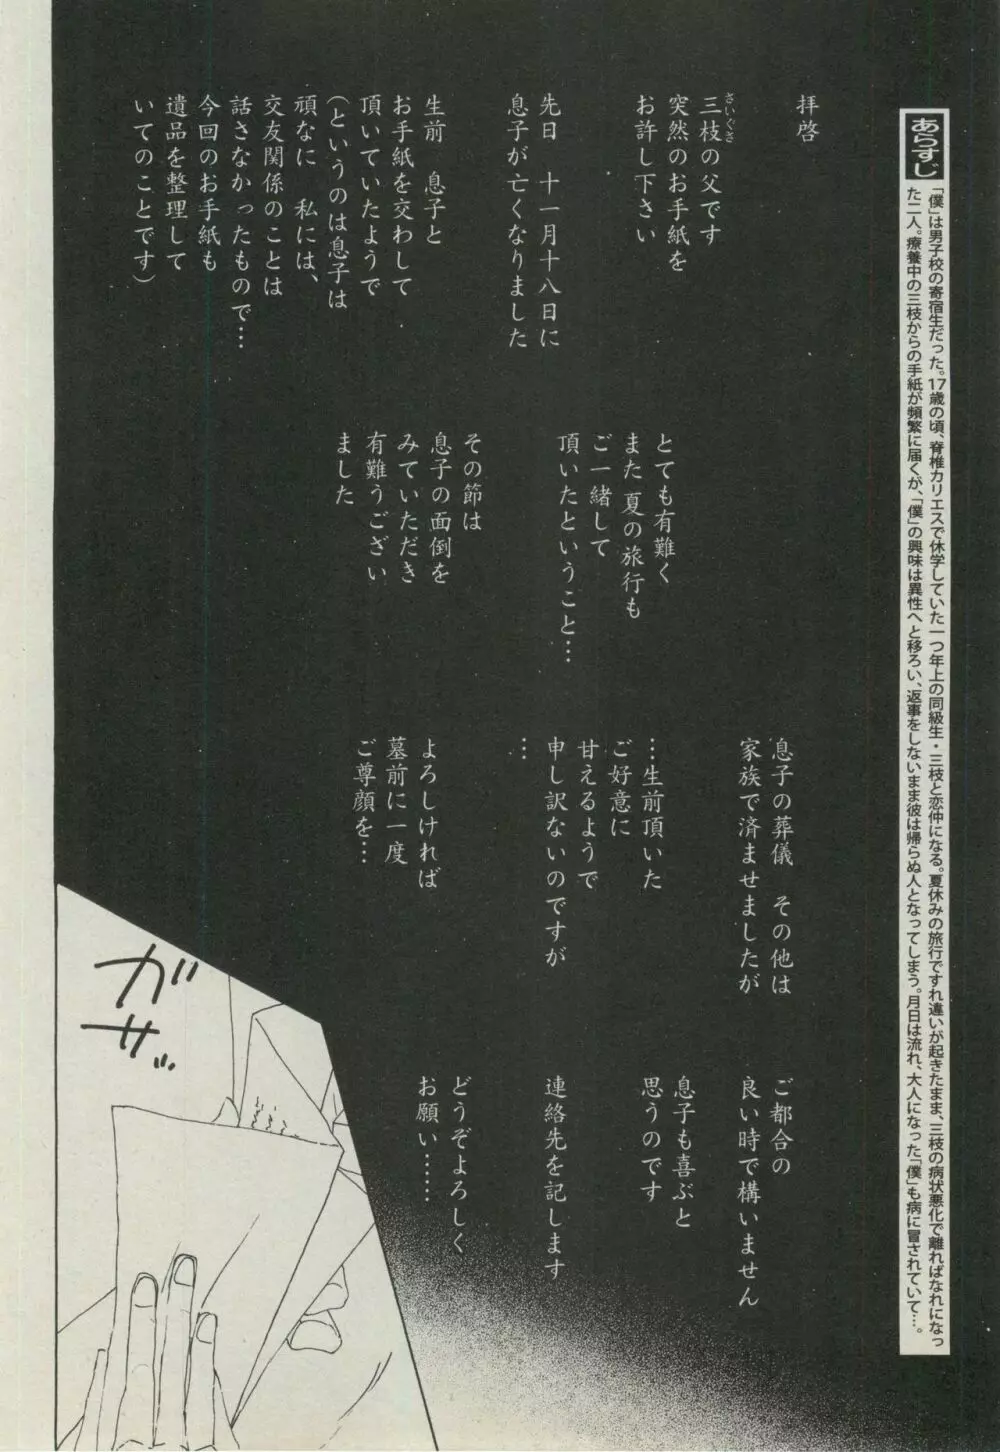 あらすじ
「僕」は男子校の寄宿生だった。17歳の頃、脊椎カリエスで休学していた一つ年上の同級生・三枝と恋仲になる。夏休みの旅行ですれ違いが起きたまま、三枝の病状悪化で離ればなれになっ
た二人。療養中の三枝からの手紙が頻繁に届くが、「僕」の興味は異性へと移ろい、返事をしないまま彼は帰らぬ人となってしまう。月日は流れ、大人になった「僕」も病に冒されていて…。
拝啓
さいぐさ
三枝の父です
突然のお手紙を
お許し下さい
先日　十一月十八日に
息子が亡くなりました
生前　息子と
お手紙を交わして
頂いていたようで
(というのは息子は
頑なに　私には、
交友関係のことは
話さなかったもので…
今回のお手紙も
遺品を整理して
いてのことです)
とても有難く
また 夏の旅行も
ご一緒して
頂いたということ…
その節は
息子の面倒を
みていただき
有難うござい
ました
息子の葬儀　その他は
家族で済ませましたが
…生前頂いた
ご好意に
甘えるようで
申し訳ないのですが
…
よろしければ
墓前に一度
ご尊顔を…
ご都合の
良い時で構いません
息子も喜ぶと
思うのです
連絡先を記します
どうぞよろしく
お願い……
ガサ…